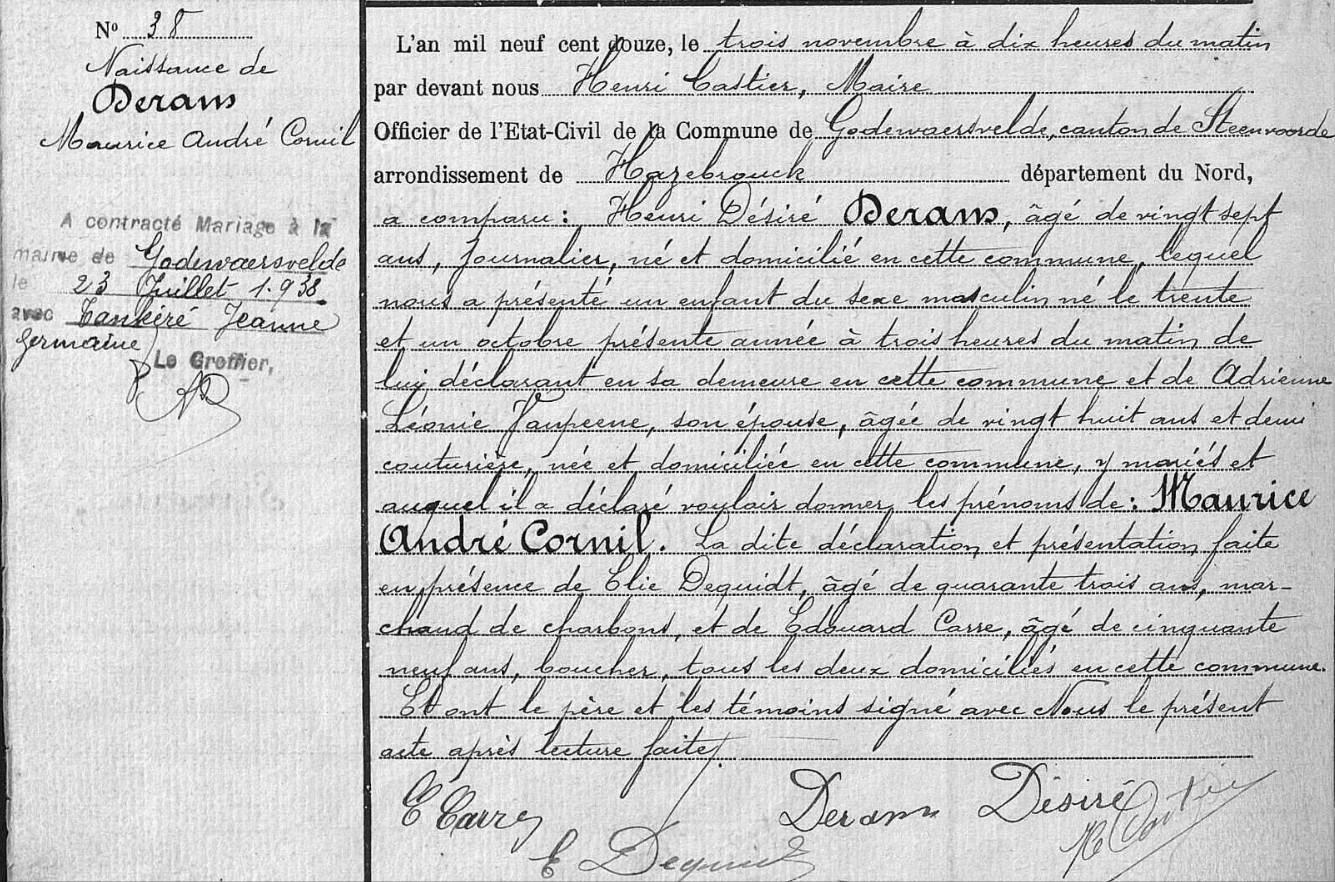 N° 38
Naissance de
Deram
Maurice André Cornil
A contracté Mariage à la
mairie de Godewaersvelde
le 23 Juillet 1.938.
avec Tankéré Jeanne
Germaine
Le Greffier,
L'an mil neuf cent douze, le trois novembre à dix heures du matin
par devant nous Henri Castier, Maire
Officier de l'Etat-Civil de la Commune de Godewaersvelde, canton de Steenvoorde
arrondissement de Hazebrouck département du Nord,
a comparu : Henri Désiré Deram, âgé de vingt sept
ans, journalier, né et domicilié en cette commune, lequel
nous a présenté un enfant du sexe masculin né le trente
et un octobre présente année à trois heures du matin de
lui déclarant en sa demeure en cette commune et de Adrienne
Léonie Vanpeene, son épouse, âgée de vingt huit ans et demi
couturière, née et domiciliée en cette commune, y mariés et
auquel il a déclaré vouloir donner les prénoms de : Maurice
André Cornil. La dite déclaration et présentation faite
en présence de Elie Dequidt, âgé de quarante trois ans, mar-
chand de charbons, et de Edouard Carre, âgé de cinquante
neuf ans, boucher, tous les deux domiciliés en cette commune.
Et ont le père et les témoins signé avec Nous le présent
acte après lecture faite.
E Carre
Deram Désiré
E Dequidt
H Castier